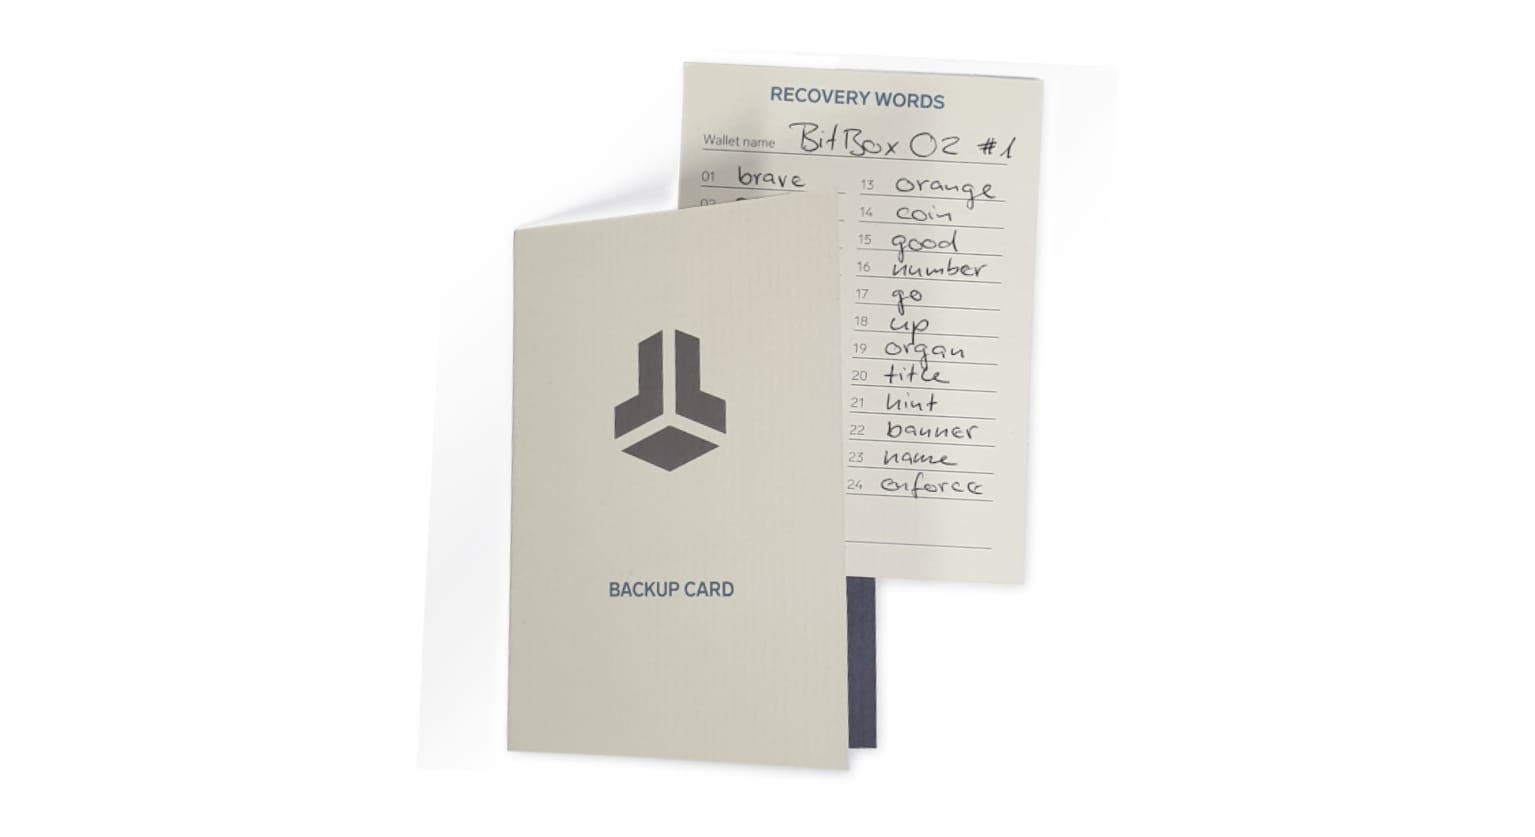 RECOVERY WORDS
Wallet name BitBox 02 #1
01 brave
02
13 orange
14 coin
15 good
16 number
17 go
18 up
19 organ
20 title
21 hint
22 banner
23 name
24 enforce
BACKUP CARD